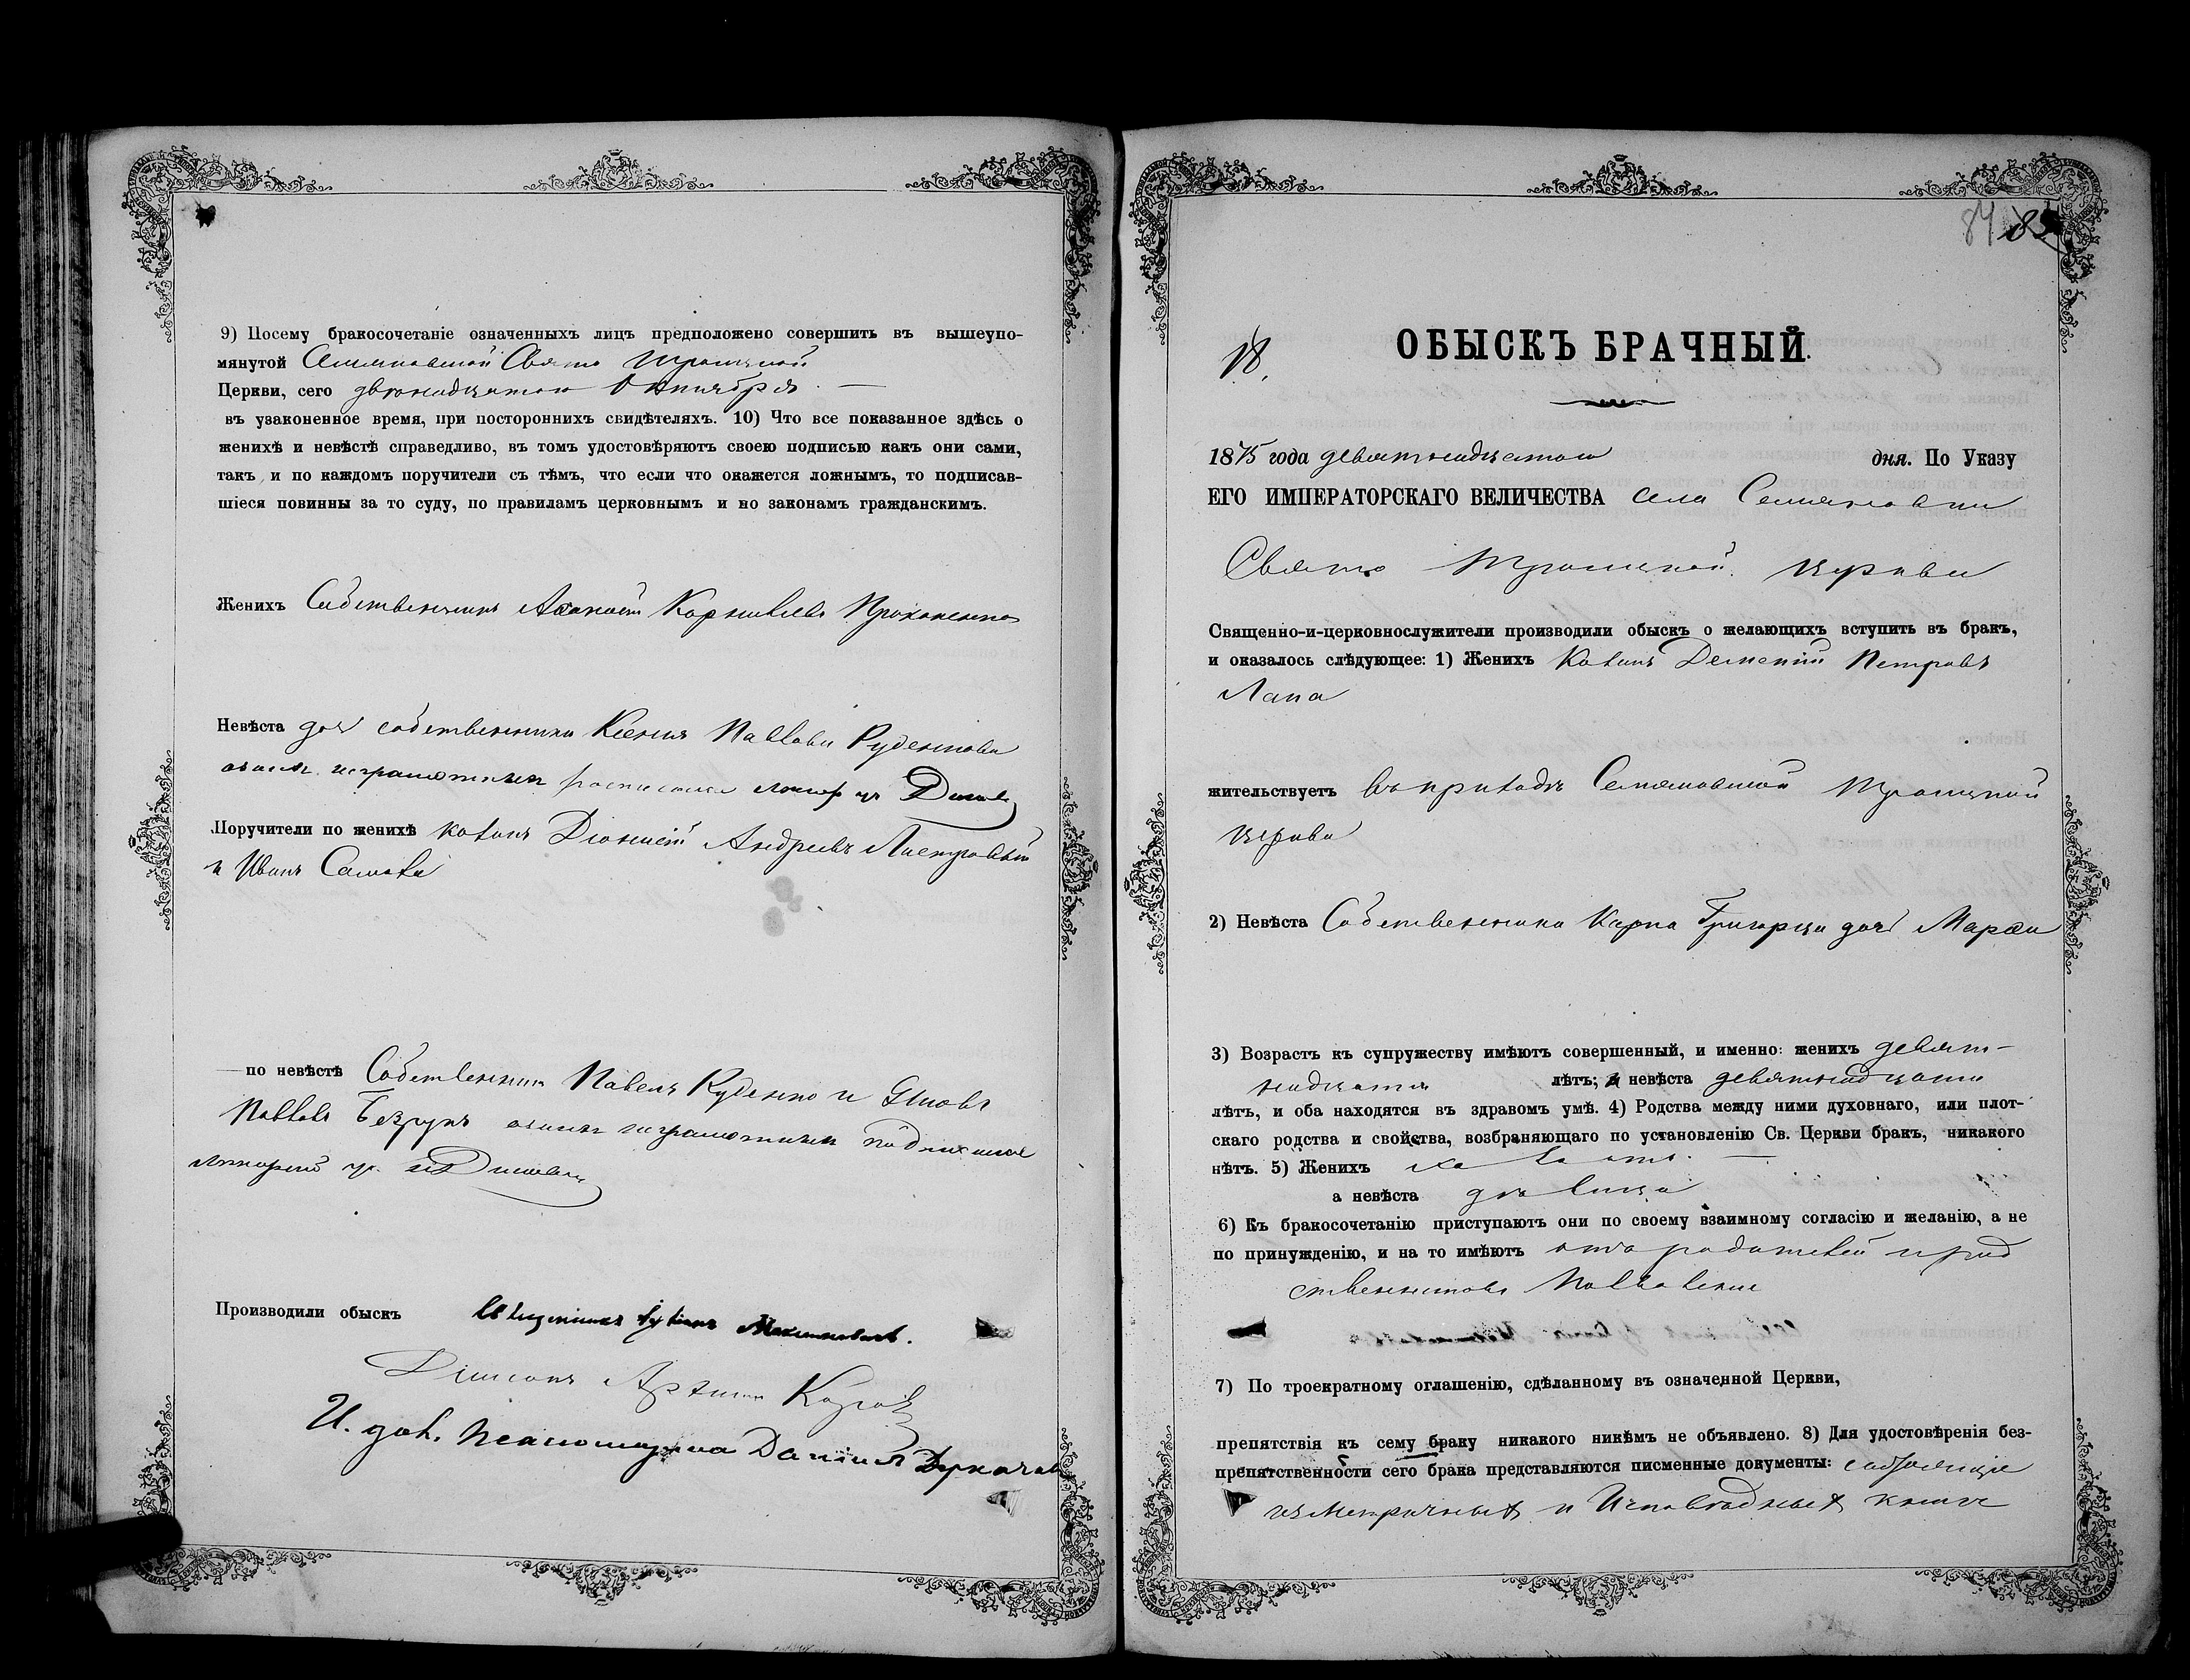 9) Посему бракосочетаніе означенныхъ лицъ предположено совершить въ вышеупо-
мянутой Семяновской Свято Троицкой
Церкви, сего Октября
въ узаконенное время, при постороннихъ свидѣтеляхъ. 10) Что все показанное здѣсь о
женихѣ и невѣстѣ справедливо, въ томъ удостовѣряютъ своею подписью какъ они сами,
такъ и по каждомъ поручители съ тѣмъ, что если что окажется ложнымъ, то подписав-
шіеся повинны за то суду, по правиламъ церковнымъ и по законамъ гражданскимъ.
Женихъ Собственникъ Корнилієвъ
Невѣста доч собственника Ксенія Павлова Руденкова
неграмотныхъ
Поручители по женихѣ козакъ Діонисій Андреевъ
и Иванъ
по невѣстѣ Собственники Павелъ Руденко и
Павловъ Безрукъ неграмотныхъ
Производили обыскъ Священникъ
Дьяконъ
И. дол. Псаломщика Даніилъ
84 85
18.
ОБЫСКЪ БРАЧНЫЙ.
1875 года девятнадцатого дня. По Указу
ЕГО ИМПЕРАТОРСКАГО ВЕЛИЧЕСТВА села Семяновки
Свято Троицкой церкви
Священно-и-церковнослужители производили обыскъ о желающихъ вступить въ бракъ,
и оказалось слѣдующее: 1) Женихъ Козакъ Дементий Петровъ
Лапа
жительствуетъ въ приходѣ Семяновской Троицкой
церкви
2) Невѣста Собственника Карпа доч Марфа
3) Возрастъ къ супружеству имѣютъ совершенный, и именно: женихъ девят-
надцати лѣтъ; а невѣста девятнадцати
лѣтъ, и оба находятся въ здравомъ умѣ. 4) Родства между ними духовнаго, или плот-
скаго родства и свойства, возбраняющаго по установленію Св. Церкви бракъ, никакого
нѣтъ. 5) Женихъ холостъ
а невѣста дѣвица
6) Къ бракосочетанію приступаютъ они по своему взаимному согласію и желанію, а не
по принужденію, и на то имѣютъ отъ родителей и род
ственниковъ
7) По троекратному оглашенію, сдѣланному въ означенной Церкви,
препятствія къ сему браку никакого никѣмъ не объявлено. 8) Для удостовѣренія без-
препятственности сего брака представляются писменные документы:
изъ Метричныхъ и Исповѣдныхъ книгъ